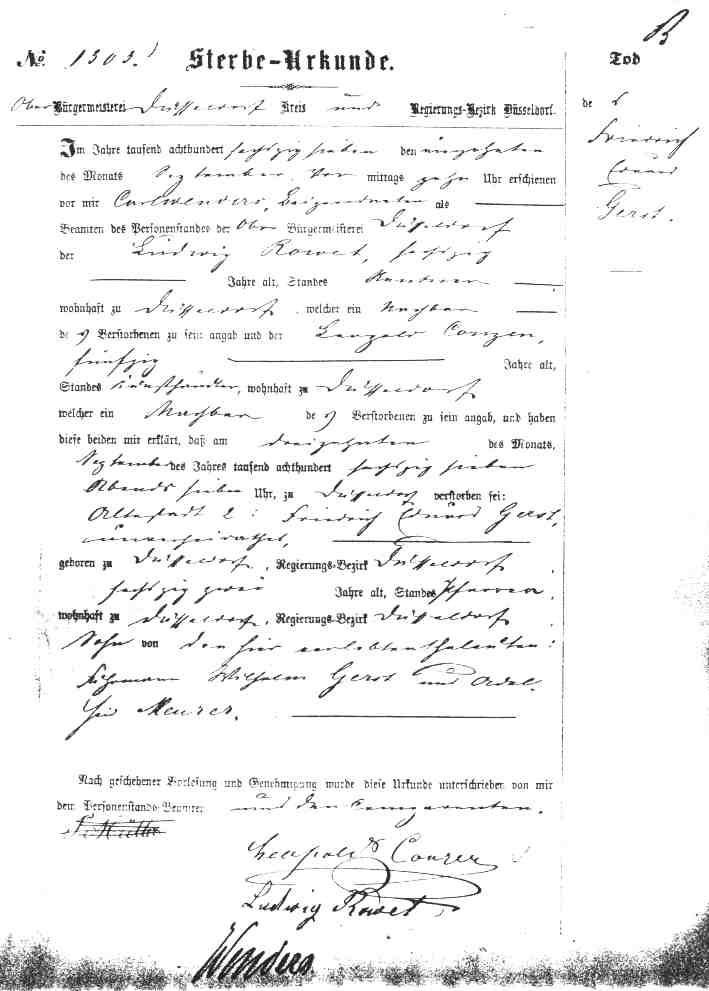 B
№ 1303.
Sterbe-Urkunde.
Tod
Ober Bürgermeisterei Düsseldorf Kreis und Regierungs-Bezirk Düsseldorf.
des
Friedrich
Eduard
Gerst.
Im Jahre tausend achthundert sechszig sieben den
des Monats September, Vor mittags zehn Uhr erschienen
vor mir Carl Wenders, Beigeordneten als
Beamten des Personenstandes der Ober Bürgermeisterei Düsseldorf
der Ludwig Rowet, sechszig
Jahre alt, Standes Rentner
wohnhaft zu Düsseldorf, welcher ein Nachbar
des Verstorbenen zu sein angab und der Leopold Conzen,
fünfzig Jahre alt,
Standes Kunsthändler, wohnhaft zu Düsseldorf
welcher ein Nachbar des Verstorbenen zu sein angab, und haben
diese beiden mir erklärt, daß am dreizehnten des Monats,
September des Jahres tausend achthundert sechszig sieben
Abends sieben Uhr, zu Düsseldorf verstorben sei:
Altestadt 2: Friedrich Eduard Gerst,
unverheirathet,
geboren zu Düsseldorf, Regierungs-Bezirk Düsseldorf
sechszig zwei Jahre alt, Standes Pfarrer,
wohnhaft zu Düsseldorf, Regierungs-Bezirk Düsseldorf
Sohn von den hier verlebten Eheleuten:
Fuhrmann Wilhelm Gerst und Adel-
heid Meurer.
Nach geschehener Vorlesung und Genehmigung wurde diese Urkunde unterschrieben von mir
dem Personenstands-Beamten und den Comparenten.
Leopold Conzen
Ludwig Rowet
Wenders